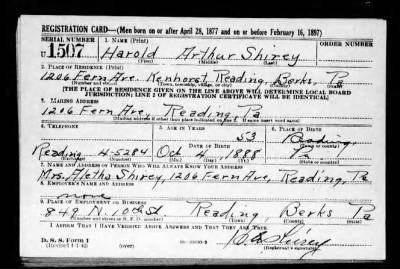 REGISTRATION CARD—(Men born on or after April 28, 1877 and on or before February 16, 1897)
SERIAL NUMBER 1. NAME (Print) ORDER NUMBER
U 1507 Harold Arthur Shirey
(First) (Middle) (Last)
2. PLACE OF RESIDENCE (Print)
1206 Fern Ave. Kenhorst, Reading, Berks, Pa
[THE PLACE OF RESIDENCE GIVEN ON THE LINE ABOVE WILL DETERMINE LOCAL BOARD
JURISDICTION; LINE 2 OF REGISTRATION CERTIFICATE WILL BE IDENTICAL]
3. MAILING ADDRESS
1206 Fern Ave Reading, Pa
[Mailing address if other than place indicated on line 2. If same insert word same]
4. TELEPHONE 5. AGE IN YEARS 6. PLACE OF BIRTH
53 Reading,
DATE OF BIRTH (Town or county)
Reading 4-5284 Oct 4, 1888 Pa
(Exchange) (Number) (Mo.) (Day) (Yr.) (State or country)
7. NAME AND ADDRESS OF PERSON WHO WILL ALWAYS KNOW YOUR ADDRESS
Mrs. Aletha Shirey, 1206 Fern Ave Reading, Pa
8. EMPLOYER'S NAME AND ADDRESS
none
9. PLACE OF EMPLOYMENT OR BUSINESS
849 N. 10th St Reading, Berks Pa
(Number and street or R. F. D. number) (Town) (County) (State)
I AFFIRM THAT I HAVE VERIFIED ABOVE ANSWERS AND THAT THEY ARE TRUE.
D. S. S. Form 1
(Revised 4-1-42) (over) (Registrant's signature)